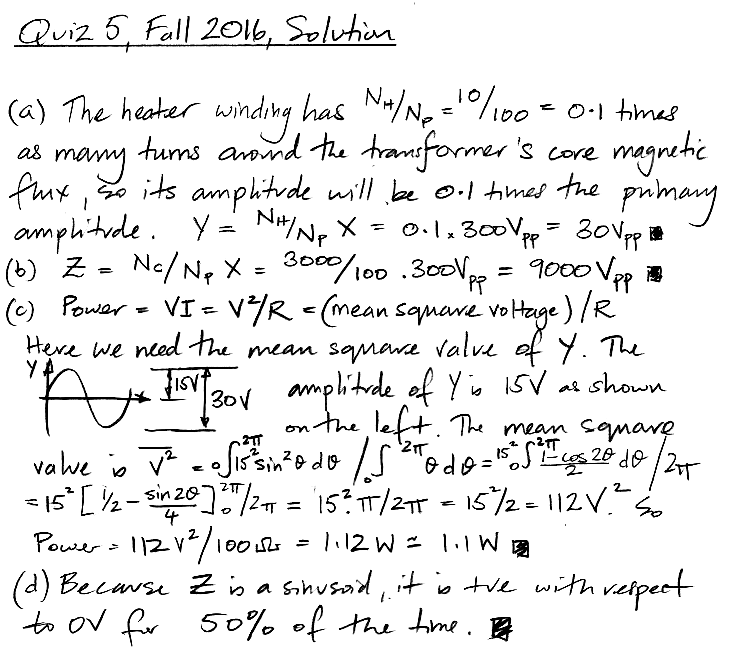 Quiz 5, Fall 2016, Solution
(a) The heater winding has N_H/N_p = 10/100 = 0.1 times
as many turns around the transformer's core magnetic
flux, so its amplitude will be 0.1 times the primary
amplitude. Y = N_H/N_p X = 0.1 x 300V_pp = 30V_pp
(b) Z = N_c/N_p X = 3000/100 . 300V_pp = 9000 V_pp
(c) Power = VI = V²/R = (mean square voltage)/R
Here we need the mean square value of Y. The
Y x 15V 30V amplitude of Y is 15V as shown
on the left. The mean square
value is V² = ₀∫^2π 15² sin²θ dθ / ₀∫^2π θ dθ = 15² ₀∫^2π 1-cos 2θ/2 dθ / 2π
= 15² [1/2 - sin 2θ/4]₀^2π / 2π = 15².π/2π = 15²/2 = 112V². So
Power = 112V²/100Ω = 1.12W ≃ 1.1W
(d) Because Z is a sinusoid, it is +ve with respect
to 0V for 50% of the time.